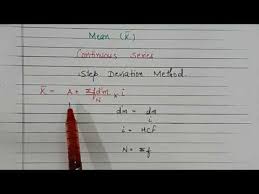 Mean (x̄)
Continuous Series
Step Deviation Method
x̄ = A + Σfd'm / N × i
d'm = dm / i
i = HCf
N = Σf